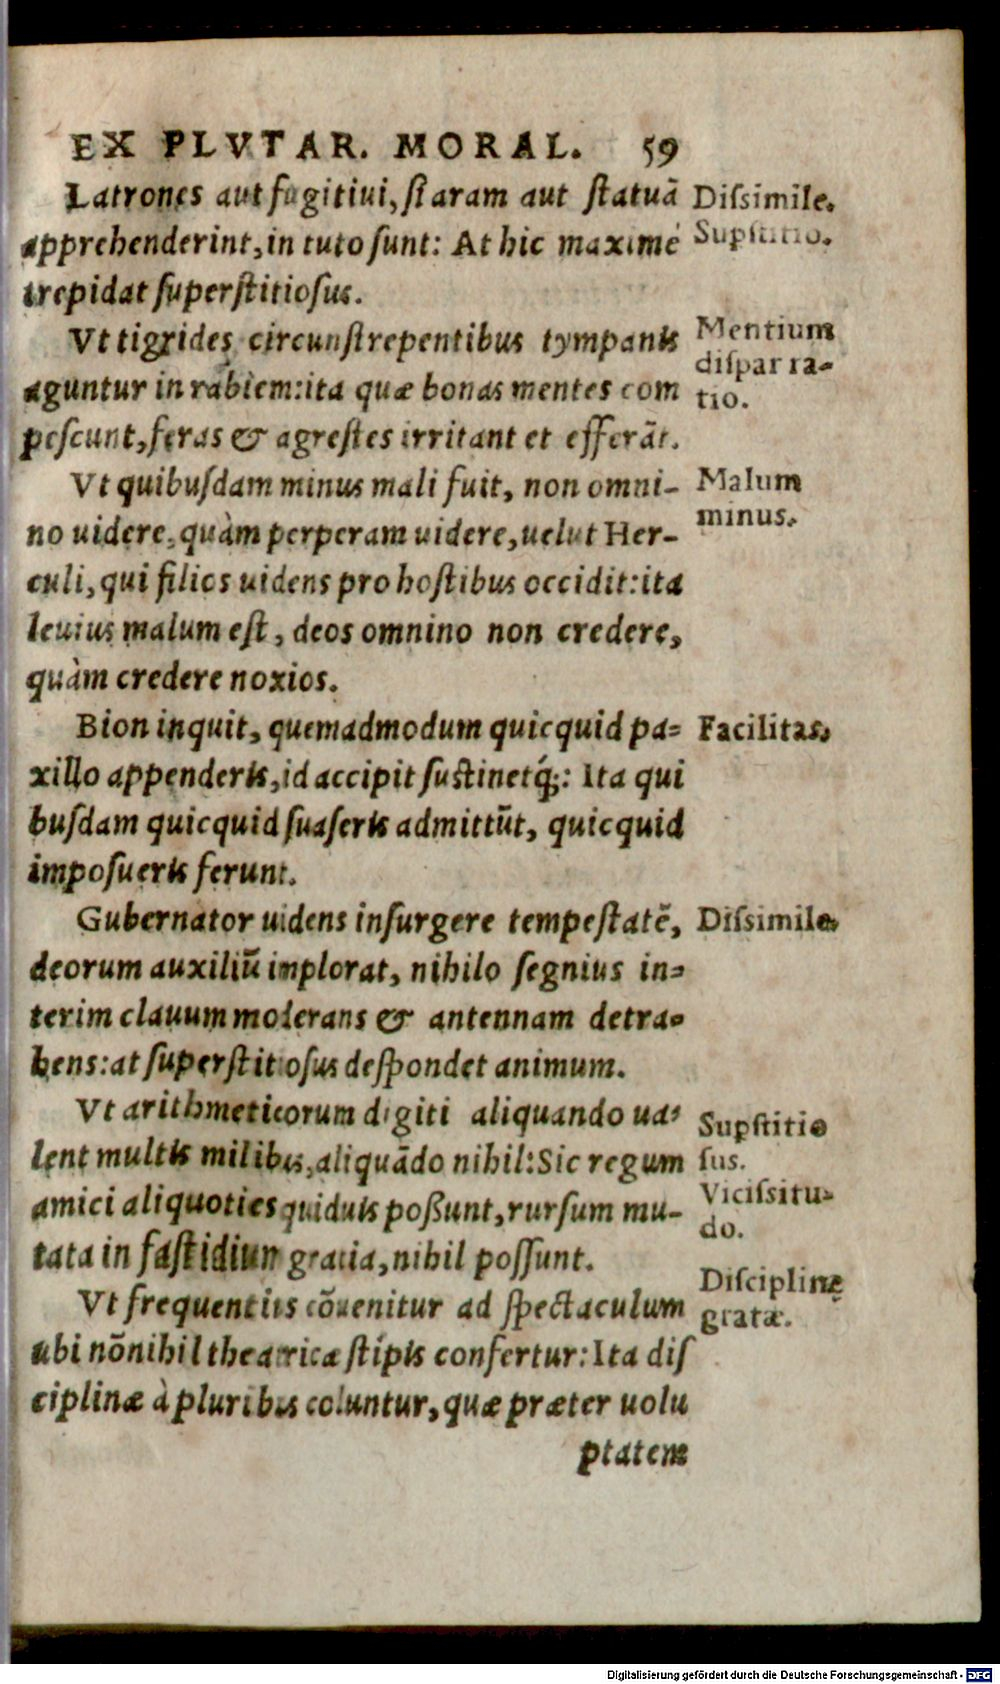 EX PLVTAR. MORAL. 59
Latrones aut fugitiui, si aram aut statuã
apprehenderint, in tuto sunt: At hic maximè
trepidat superstitiosus.
Dissimile.
Supstitio.
Vt tigrides circunstrepentibus tympanis
aguntur in rabiem: ita quæ bonas mentes com
pescunt, feras & agrestes irritant et efferãt.
Mentium
dispar ra-
tio.
Vt quibusdam minus mali fuit, non omni-
no uidere, quàm perperam uidere, uelut Her-
culi, qui filios uidens pro hostibus occidit: ita
leuius malum est, deos omnino non credere,
quàm credere noxios.
Malum
minus.
Bion inquit, quemadmodum quicquid pa-
xillo appenderis, id accipit sustinetq́;: Ita qui
busdam quicquid suaseris admittũt, quicquid
imposueris ferunt.
Facilitas.
Gubernator uidens insurgere tempestatẽ,
deorum auxiliũ implorat, nihilo segnius in-
terim clauum moderans & antennam detra-
hens: at superstitiosus despondet animum.
Dissimile.
Vt arithmeticorum digiti aliquando ua-
lent multis milibus, aliquãdo nihil: Sic regum
amici aliquoties quiduis possunt, rursum mu-
tata in fastidium gratia, nihil possunt.
Supstitio
sus.
Vicissitu-
do.
Vt frequentius cõuenitur ad spectaculum
ubi nõnihil theatricæ stipis confertur: Ita dis
ciplinæ à pluribus coluntur, quæ præter uolu
ptatem
Disciplinæ
gratæ.
Digitalisierung gefördert durch die Deutsche Forschungsgemeinschaft - DFG